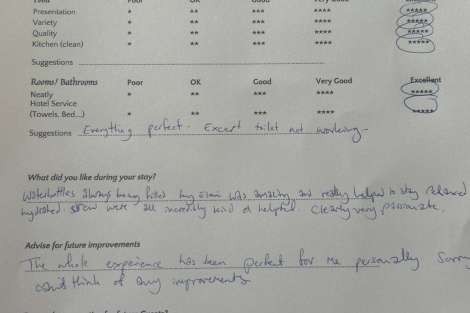 Food Poor OK Good Very Good Excellent
Presentation * ** *** **** *****
Variety * ** *** **** *****
Quality * ** *** **** *****
Kitchen (clean) * ** *** **** *****
Suggestions
Rooms/ Bathrooms Poor OK Good Very Good Excellent
Neatly * ** *** **** *****
Hotel Service
(Towels, Bed...) * ** *** **** *****
Suggestions Everything perfect. Except toilet not working.
What did you like during your stay?
Waterbottles always being filled was amazing and really helped to stay relaxed
hydrated. Staff were all incredibly kind & helpful. Clearly very passionate.
Advise for future improvements
The whole experience has been perfect for me personally Sorry
can't think of any improvements